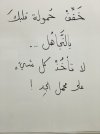 خَفِّفْ حُمولة قلبكَ
بالتَّجاهُل ..
لا تأخُذ كل شيء
على محمل الجد !